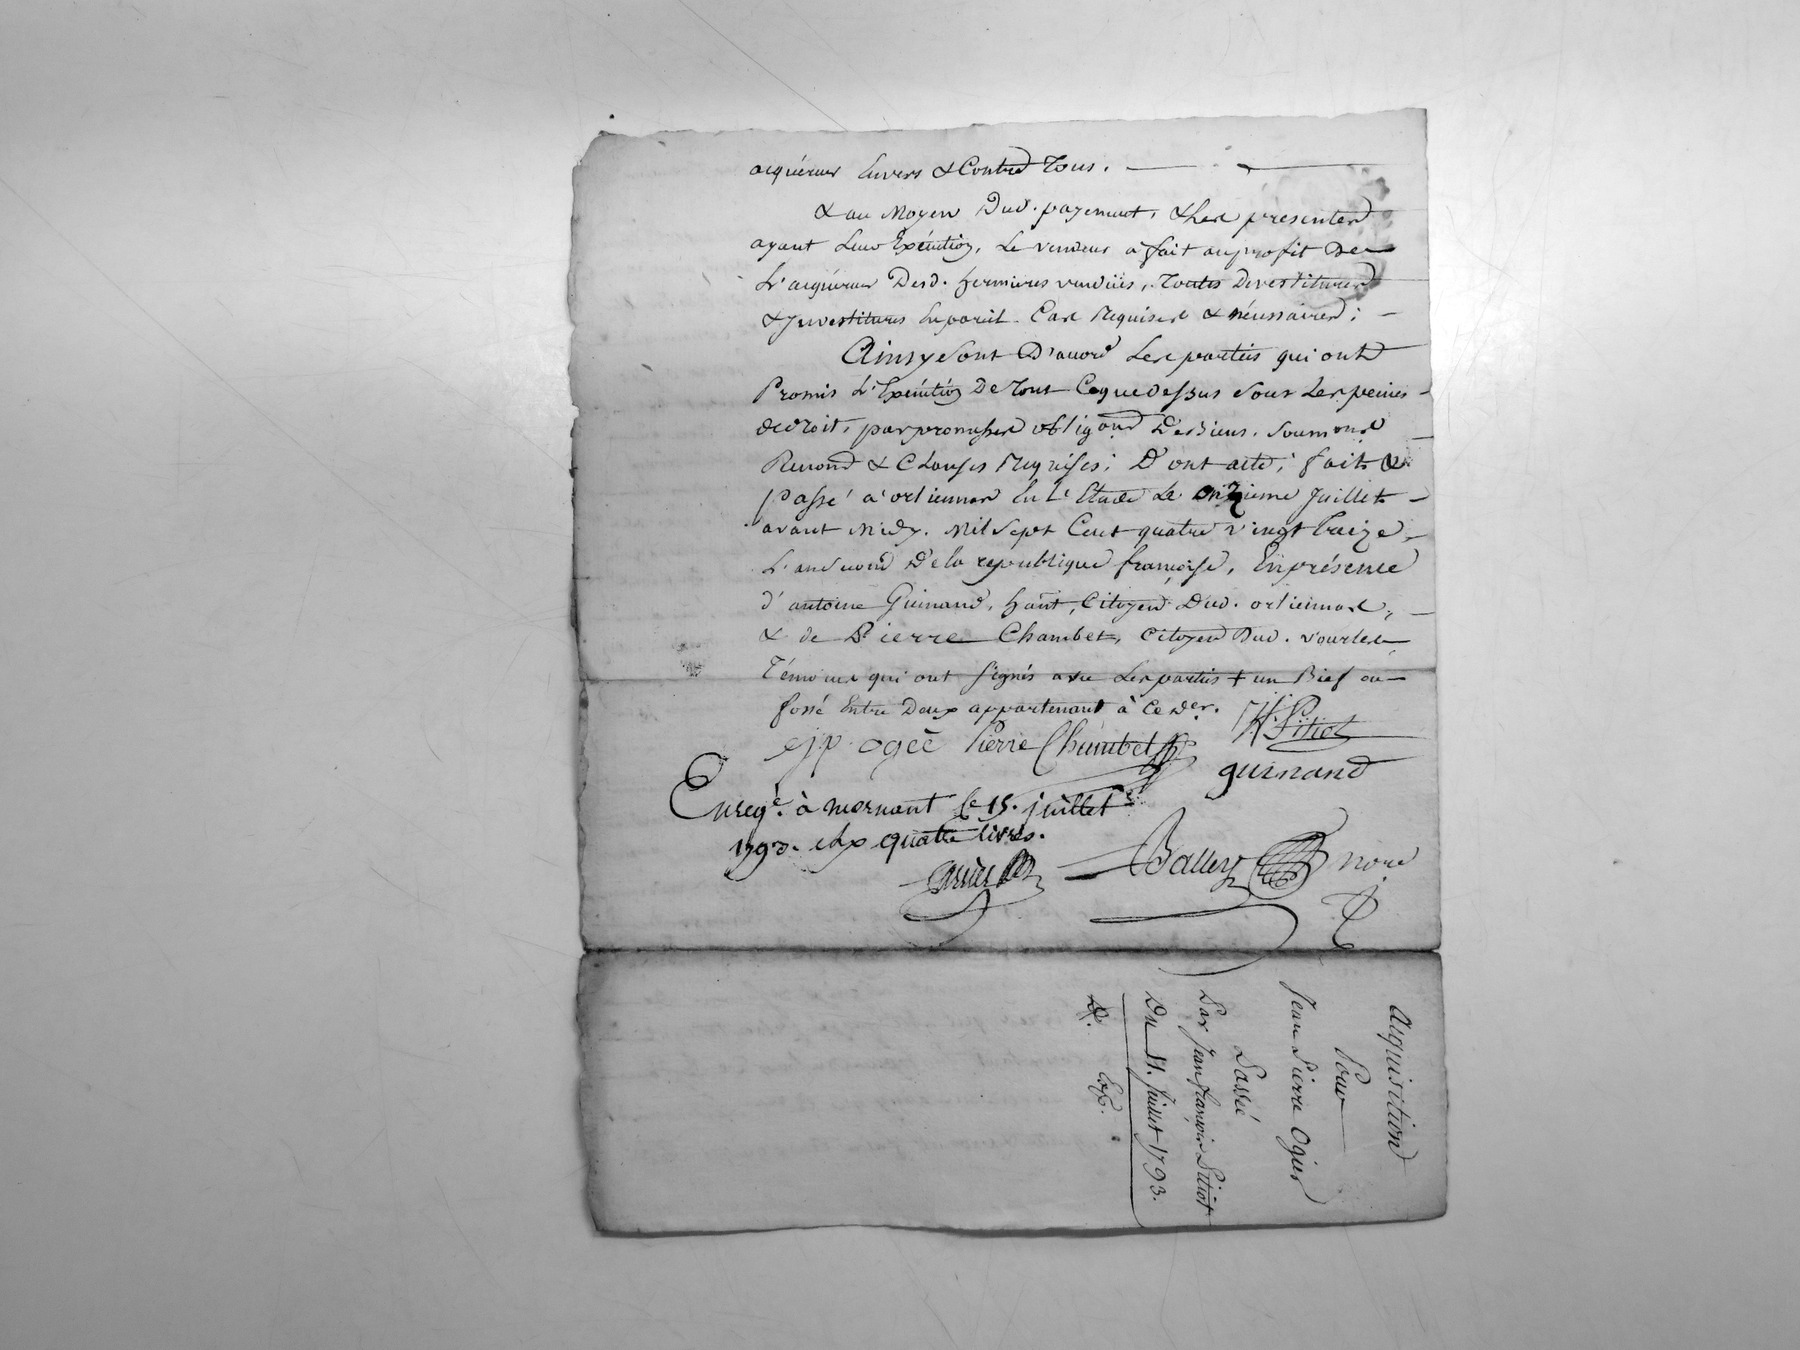 acquéreur Envers & Contre Tous.
& au Moyen Dud. payement, & Les presentes
ayant Leur Exécution, Le vendeur a fait au profit De
L'acquéreur Desd. hermieres venduës, Toutes Devestitures
& Investitures En pareil Cas Requises & nécessaires;
Ainsy Sont D'accord Les parties qui ont
Promis L'Exécution De Tout Ce que Dessus Sous Les peines
de droit, par promesses obligons De Biens, Soumons
Renonon & Clauses Requises; D'ont acte; fait &
passé a orlienas En L'Etude Le onzieme Juillet
avant Midy, Mil Sept Cent quatre vingt treize,
L'an Second De la republique françoise, En présence
d'antoine Guinand, hant, Citoyen Dud. orlienas,
& de Pierre Chambet, Citoyen Dud. vourles,
Témoins qui ont signés avec Les parties + un Bief ou
fossé Entre Deux appartenant à Ce Der.
ejp ogeé Pierre Chambet JF Pitiot
guinand
Enregé. à mornant le 15. juillet
1793. quatre livres.
Balley nore
Acquisition
Pour
Jean Pierre Ogier
Passée
Par Jean françois Pitiot
Du 11. Juillet 1793.